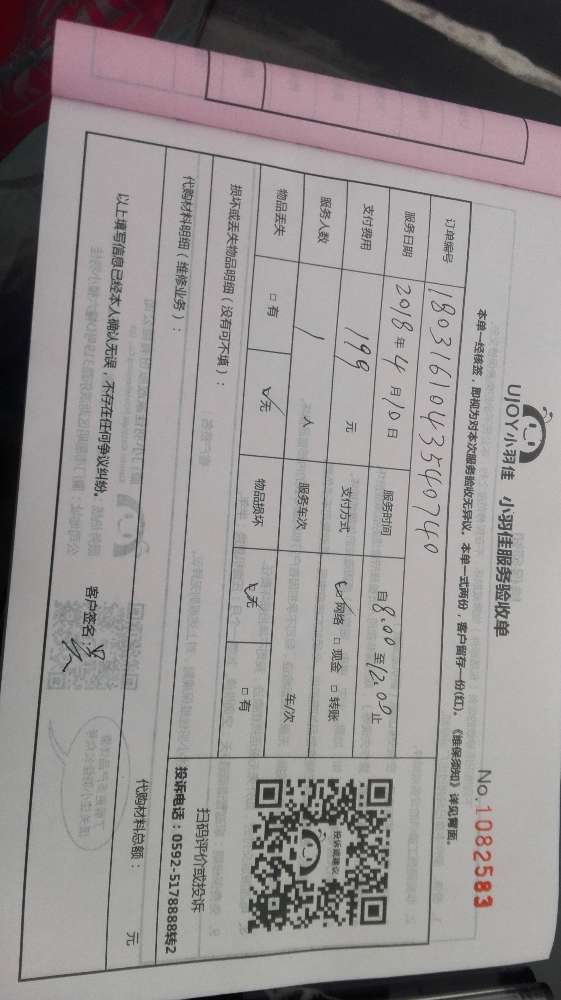 UJOY小羽佳 小羽佳服务验收单
No.1082583
本单一经核签，即视为对本次服务验收无异议。本单一式两份，客户留存一份(红)。《维保须知》详见背面。
订单编号 180316104354074​0
服务日期 2018年4月10日 服务时间 自8.00至12.00止
支付费用 199 元 支付方式 ☑网络 □现金 □转账
服务人数 1 人 服务车次 车/次
物品丢失 □有 ☑无 物品损坏 ☑无 □有
损坏或丢失物品明细（没有可不填）：
投诉或建议
扫码评价或投诉
投诉电话：0592-5178888转2
代购材料明细（维修业务）：
代购材料总额： 元
以上填写信息已经本人确认无误，不存在任何争议纠纷。
客户签名：